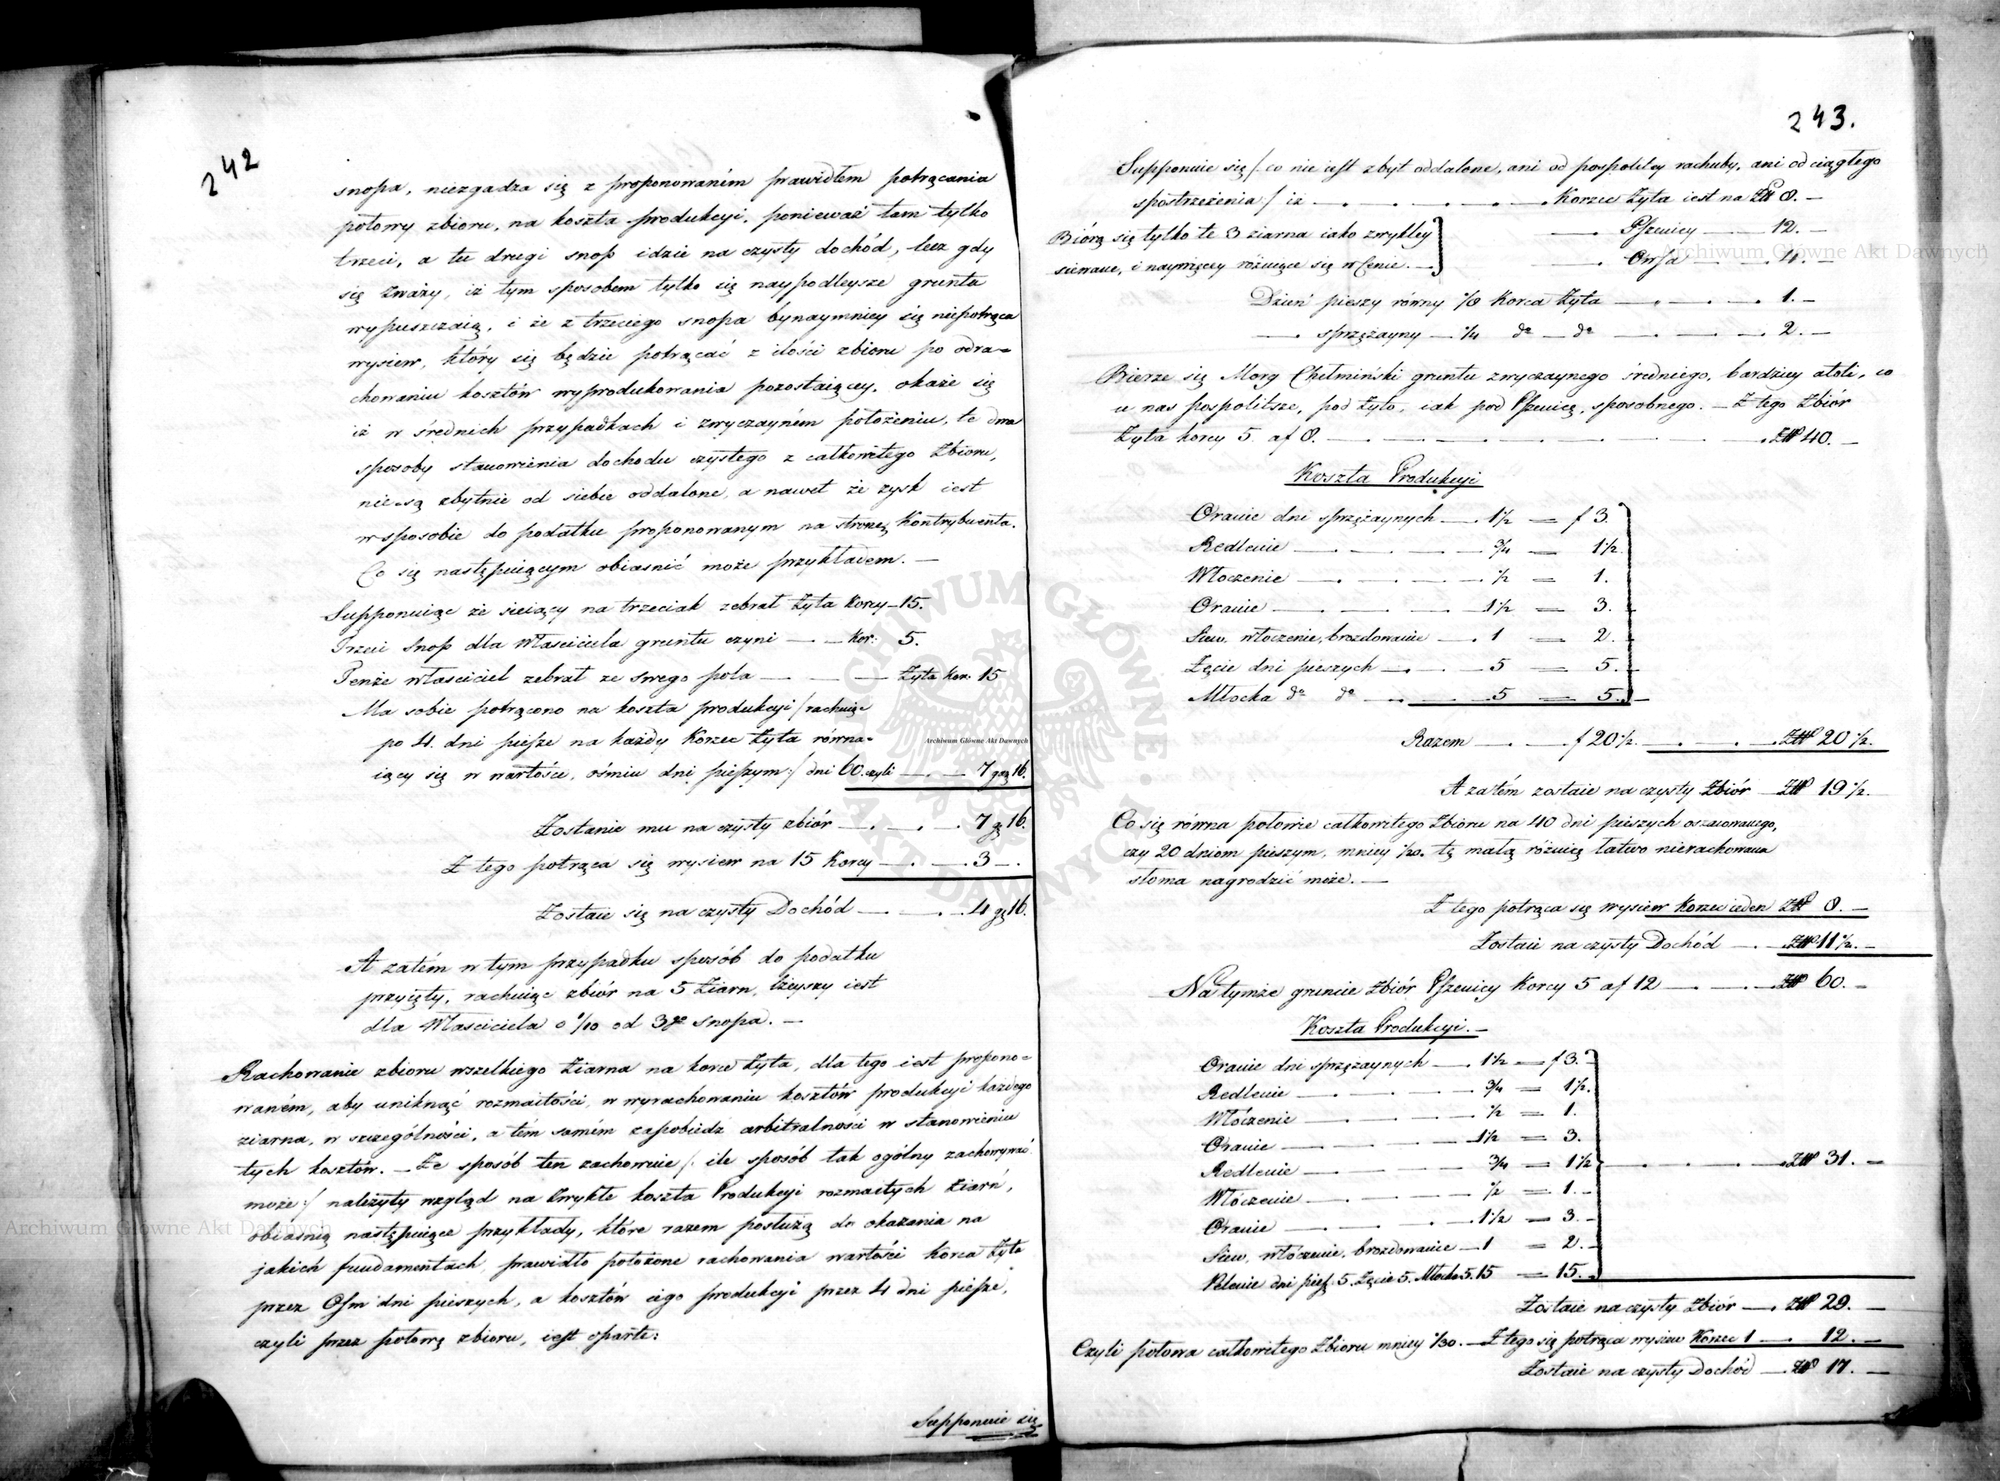 242
snopa, niezgadza się z proponowaném prawidłem potrącania
połowy zbioru, na koszta produkcyi, ponieważ tam tylko
trzeci, a tu drugi snop idzie na czysty dochód, lecz gdy
się zważy, iż tym sposobem tylko się naypodleysze grunta
wypuszczaią, i że z trzeciego snopa bynaymniey się niepotrąca
wysiew, który się będzie potrącać z ilości zbioru po odra=
chowaniu kosztów wyprodukowania pozostaiącey, okaże się
iż w średnich przypadkach i zwyczayném położeniu, te dwa
sposoby stanowienia dochodu czystego z całkowitego Zbioru,
nie są zbytnie od siebie oddalone, a nawet że zysk iest
w sposobie do podatku proponowanym na stronę Kontrybuenta.
Co się następuiącym obiasnić może przykładem. —
Supponuiąc że sieiący na trzeciak zebrał Żyta Korcy — 15.
Trzeci Snop dla Właściciela gruntu czyni — — Kor: 5.
Tenże właściciel zebrał ze swego pola — — — Żyta Kor. 15
Ma sobie potrącono na koszta produkcyi /: rachuiąc
po 4. dni piesze na każdy Korzec Żyta równa=
iący się w wartości, ośmiu dni pieszym :/ dni 60. czyli — . — 7 grs 16.
Zostanie mu na czysty zbiór — . — . — 7 g 16.
Z tego potrąca się wysiew na 15 Korcy — . — . 3 — .
Zostaie się na czysty Dochód — . — . 4 g 16.
A zatém w tym przypadku sposób do podatku
przyięty, rachuiąc zbiór na 5 Ziarn, lżeyszy iest
dla Właściciela o 1/10 od 3go Snopa. —
Rachowanie zbioru wszelkiego Ziarna na korce Żyta, dla tego iest propono=
waném, aby uniknąć rozmaitości, w wyrachowaniu kosztów produkcyi każdego
ziarna, w szczególności, a tém samém zapobiedz arbitralności w stanowieniu
tych kosztów. — Że sposób ten zachowuie /: ile sposób tak ogólny zachowywać
może :/ należyty wzgląd na Zwykłe koszta Produkcyi rozmaitych Ziarn,
obiasnią następuiące przykłady, które razem posłużą do okazania na
jakich fundamentach, prawidło położone rachowania wartości korca Żyta
przez Ośm dni pieszych, a kosztów iego produkcyi przez 4 dni piesze,
czyli przez połowę zbioru, iest oparte:
Supponuie się
243.
Supponuie się /: co nie iest zbyt oddalone, ani od pospolitey rachuby, ani od ciągłego
spostrzeżenia :/ iż — . — . — . — . — Korzec Żyta iest na Złł 8. —
Biórą się tylko te 3 ziarna iako zwykley — Pszenicy — 12. —
siewane, i naywięcey różniące się w Cenie. — — Owsa — . — 4. —
Dzień pieszy równy 1/8 Korca Żyta — . — . — 1. —
— sprzężayny — 1/4 do — do — . — . — 2. —
Bierze się Morg Chełmiński gruntu zwyczaynego średniego, bardziey atoli, co
u nas pospolitsze, pod żyto, iak pod Pszenicę, sposobnego. — Z tego Zbiór
Żyta korcy 5. af 8. — . — . — . — . — . Złł 40. —
Koszta Produkcyi
Oranie dni sprzężaynych — . 1 1/2 = f 3.
Redlenie — . — . — . — 3/4 = 1 1/2.
Włoczenie — . — . — . — 1/2 = 1.
Oranie — . — . — . — 1 1/2 = 3.
Siew, włoczenie, brozdowanie — . 1 = 2. —
Żęcie dni pieszych — . — . 5 = 5. —
Młocka do do — . — . 5 = 5. —
Razem — . — . f 20 1/2. — . — . — Złł 20 1/2.
A zatém zostaie na czysty Zbiór Złł 19 1/2.
Co się równa połowie całkowitego Zbioru na 40 dni pieszych oszacowanego,
czy 20 dniom pieszym, mniey 1/20. tę małą różnicę łatwo nierachowana
słoma nagrodzić może. —
Z tego potrąca się wysiew Korzec ieden Złł 8. —
Zostaie na czysty Dochód — . Złł 11 1/2. —
Na tymże gruncie Zbiór Pszenicy Korcy 5 af 12 — . — . Złł 60. —
Koszta Produkcyi. —
Oranie dni sprzężaynych — . 1 1/2 = f 3.
Redlenie — . — . — . — 3/4 = 1 1/2.
Włóczenie — . — . — . — 1/2 = 1.
Oranie — . — . — . — 1 1/2 = 3.
Redlenie — . — . — . — 3/4 = 1 1/2 — . — . — . Złł 31. —
Włóczenie — . — . — . — 1/2 = 1. —
Oranie — . — . — . — 1 1/2 = 3. —
Siew, włóczenie, brozdowanie — 1 = 2. —
Pelenie dni piesz: 5. Żęcie 5. Młocka 5. 15 = 15. —
Zostaie na czysty Zbiór — . Złł 29. —
Czyli połowa całkowitego Zbioru mniey 1/30. — Z tego się potrąca wysiew Korzec 1 — . 12. —
Zostaie na czysty Dochód — . Złł 17. —
Archiwum Główne Akt Dawnych
Archiwum Główne Akt Dawnych
Archiwum Główne Akt Dawnych
ARCHIWUM GŁÓWNE · AKT DAWNYCH ·